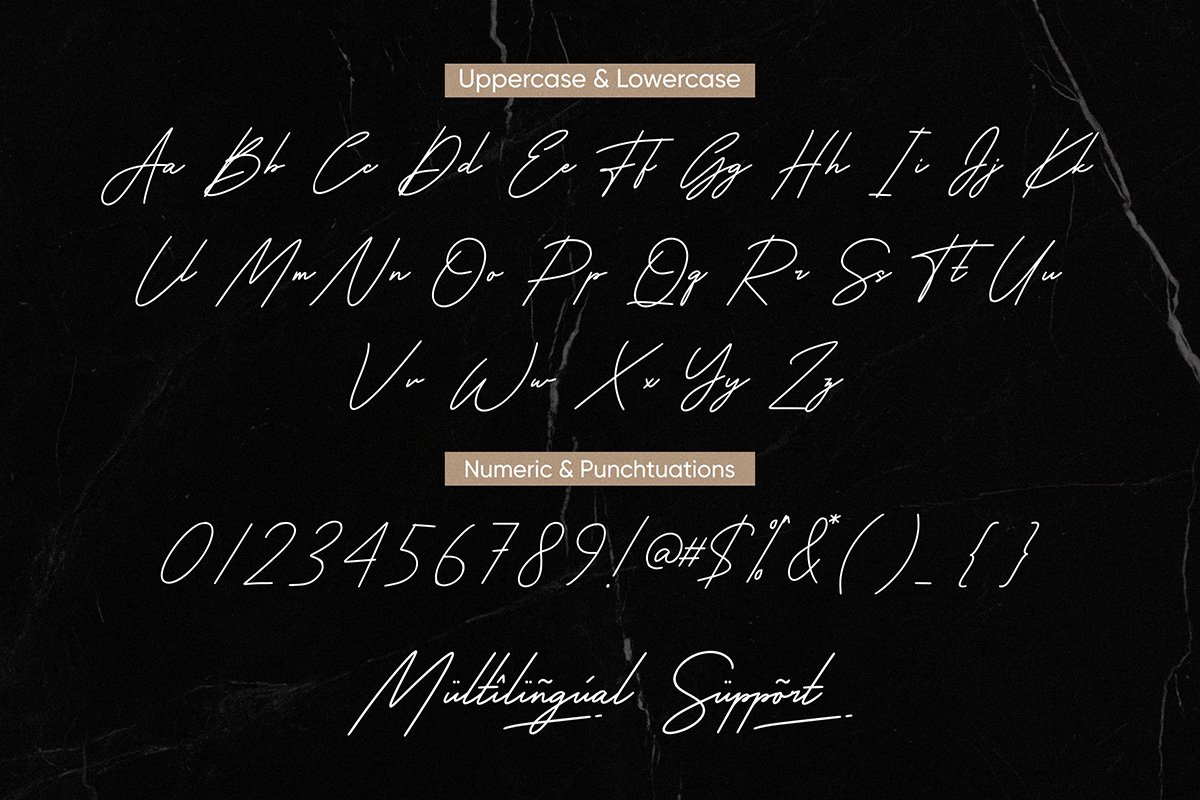 Uppercase & Lowercase
Aa Bb Cc Dd Ee Ff Gg Hh Ii Jj Kk
Ll Mm Nn Oo Pp Qq Rr Ss Tt Uu
Vv Ww Xx Yy Zz
Numeric & Punchtuations
0123456789!@#$%&*()_{}
Mültîlïñgúal Süppõrt